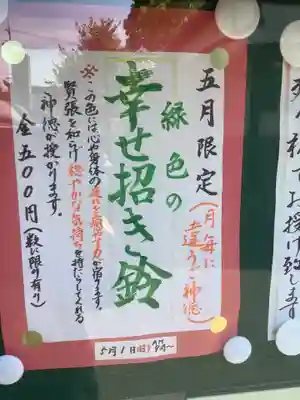 五月限定
(月毎に
違うご神徳)
緑色の
幸せ招き鈴
※この色には心や身体の疲れを癒す力が宿ります。
緊張を和らげ穏やかな気持を持たらしてくれる
神徳が授かります。
金五〇〇円(数に限り有り)
5月1日(日)AM 9時〜
でお授け致します